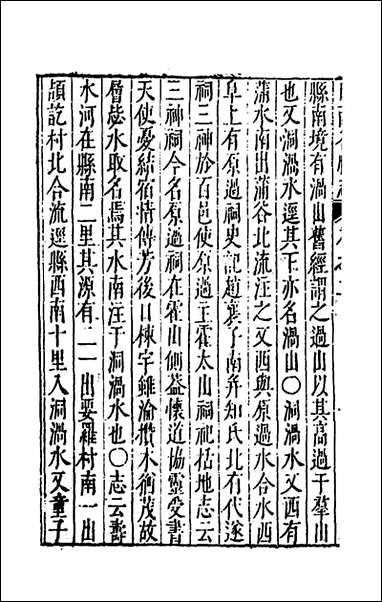 縣南境有渦山舊經謂之過山以其高過于羣山
也又洞渦水逕其下亦名渦山〇洞渦水又西有
蒲水南出蒲谷北流注之又西與原過水合水西
阜上有原過祠史記趙襄子南并知氏北有代遂
祠三神於百邑使原過主霍太山祠祀括地志云
三神祠今名原過祠在霍山側葢懷道協靈受書
天使憂結宿情傳芳後日棟宇雖淪攢木猶茂故
曾遊水取名焉其水南注于洞渦水也〇志云壽
水河在縣南二里其源有二一出要羅村南一出
頡訖村北合流逕縣西南十里入洞渦水又童子